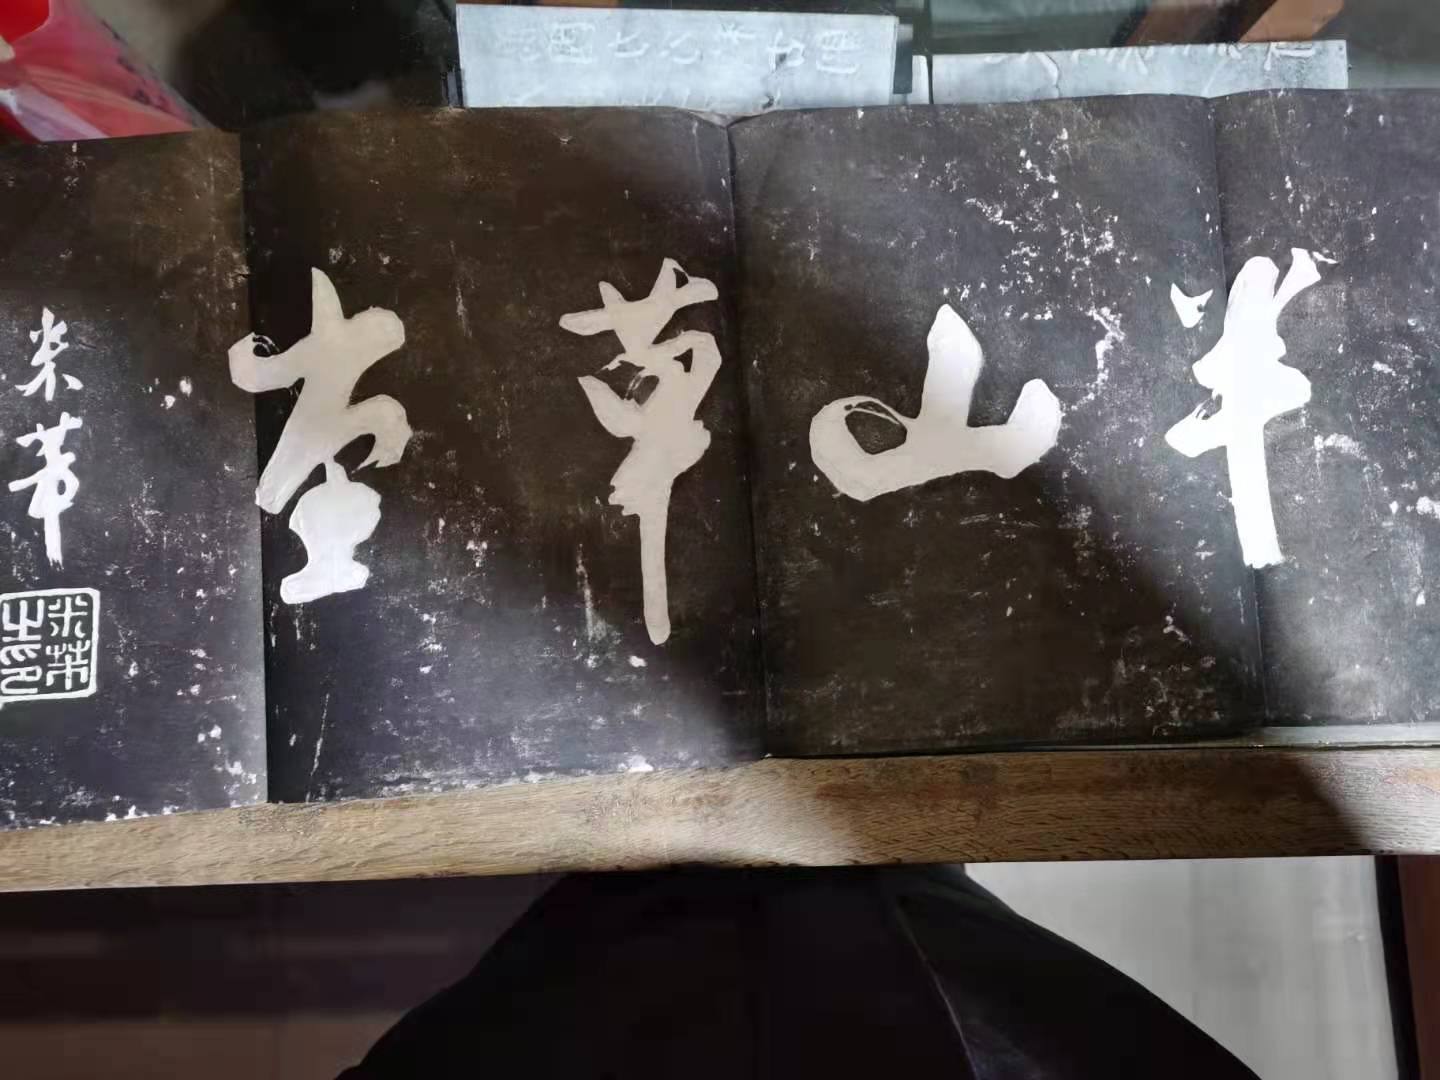 半山草堂
米芾
米芾之印